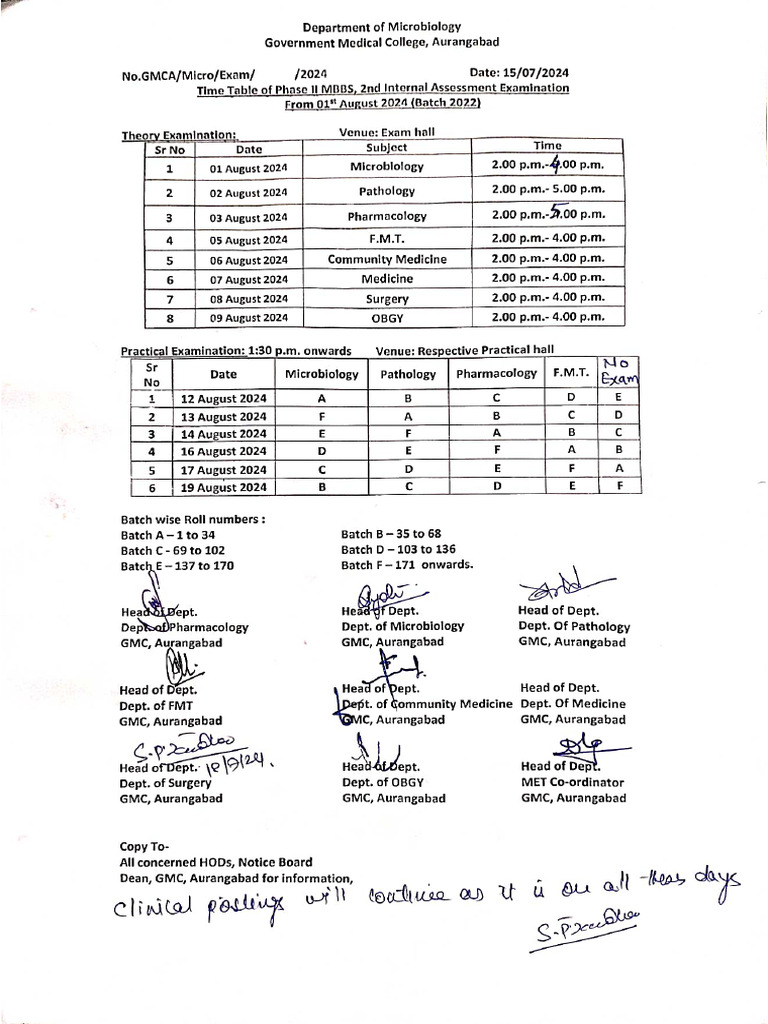 Department of Microbiology
Government Medical College, Aurangabad
No.GMCA/Micro/Exam/ /2024 Date: 15/07/2024
Time Table of Phase II MBBS, 2nd Internal Assessment Examination
From 01st August 2024 (Batch 2022)
Theory Examination: Venue: Exam hall
Sr No Date Subject Time
1 01 August 2024 Microbiology 2.00 p.m.-4.00 p.m.
2 02 August 2024 Pathology 2.00 p.m.- 5.00 p.m.
3 03 August 2024 Pharmacology 2.00 p.m.-5.00 p.m.
4 05 August 2024 F.M.T. 2.00 p.m.- 4.00 p.m.
5 06 August 2024 Community Medicine 2.00 p.m.- 4.00 p.m.
6 07 August 2024 Medicine 2.00 p.m.- 4.00 p.m.
7 08 August 2024 Surgery 2.00 p.m.- 4.00 p.m.
8 09 August 2024 OBGY 2.00 p.m.- 4.00 p.m.
Practical Examination: 1:30 p.m. onwards Venue: Respective Practical hall
Sr No Date Microbiology Pathology Pharmacology F.M.T. No Exam
1 12 August 2024 A B C D E
2 13 August 2024 F A B C D
3 14 August 2024 E F A B C
4 16 August 2024 D E F A B
5 17 August 2024 C D E F A
6 19 August 2024 B C D E F
Batch wise Roll numbers :
Batch A – 1 to 34 Batch B – 35 to 68
Batch C - 69 to 102 Batch D – 103 to 136
Batch E – 137 to 170 Batch F – 171 onwards.
Head of Dept. Head of Dept. Head of Dept.
Dept. of Pharmacology Dept. of Microbiology Dept. Of Pathology
GMC, Aurangabad GMC, Aurangabad GMC, Aurangabad
Head of Dept. Head of Dept. Head of Dept.
Dept. of FMT Dept. of Community Medicine Dept. Of Medicine
GMC, Aurangabad GMC, Aurangabad GMC, Aurangabad
Head of Dept. Head of Dept. Head of Dept.
Dept. of Surgery Dept. of OBGY MET Co-ordinator
GMC, Aurangabad GMC, Aurangabad GMC, Aurangabad
Copy To-
All concerned HODs, Notice Board
Dean, GMC, Aurangabad for information,
Clinical postings will continue as it is on all these days